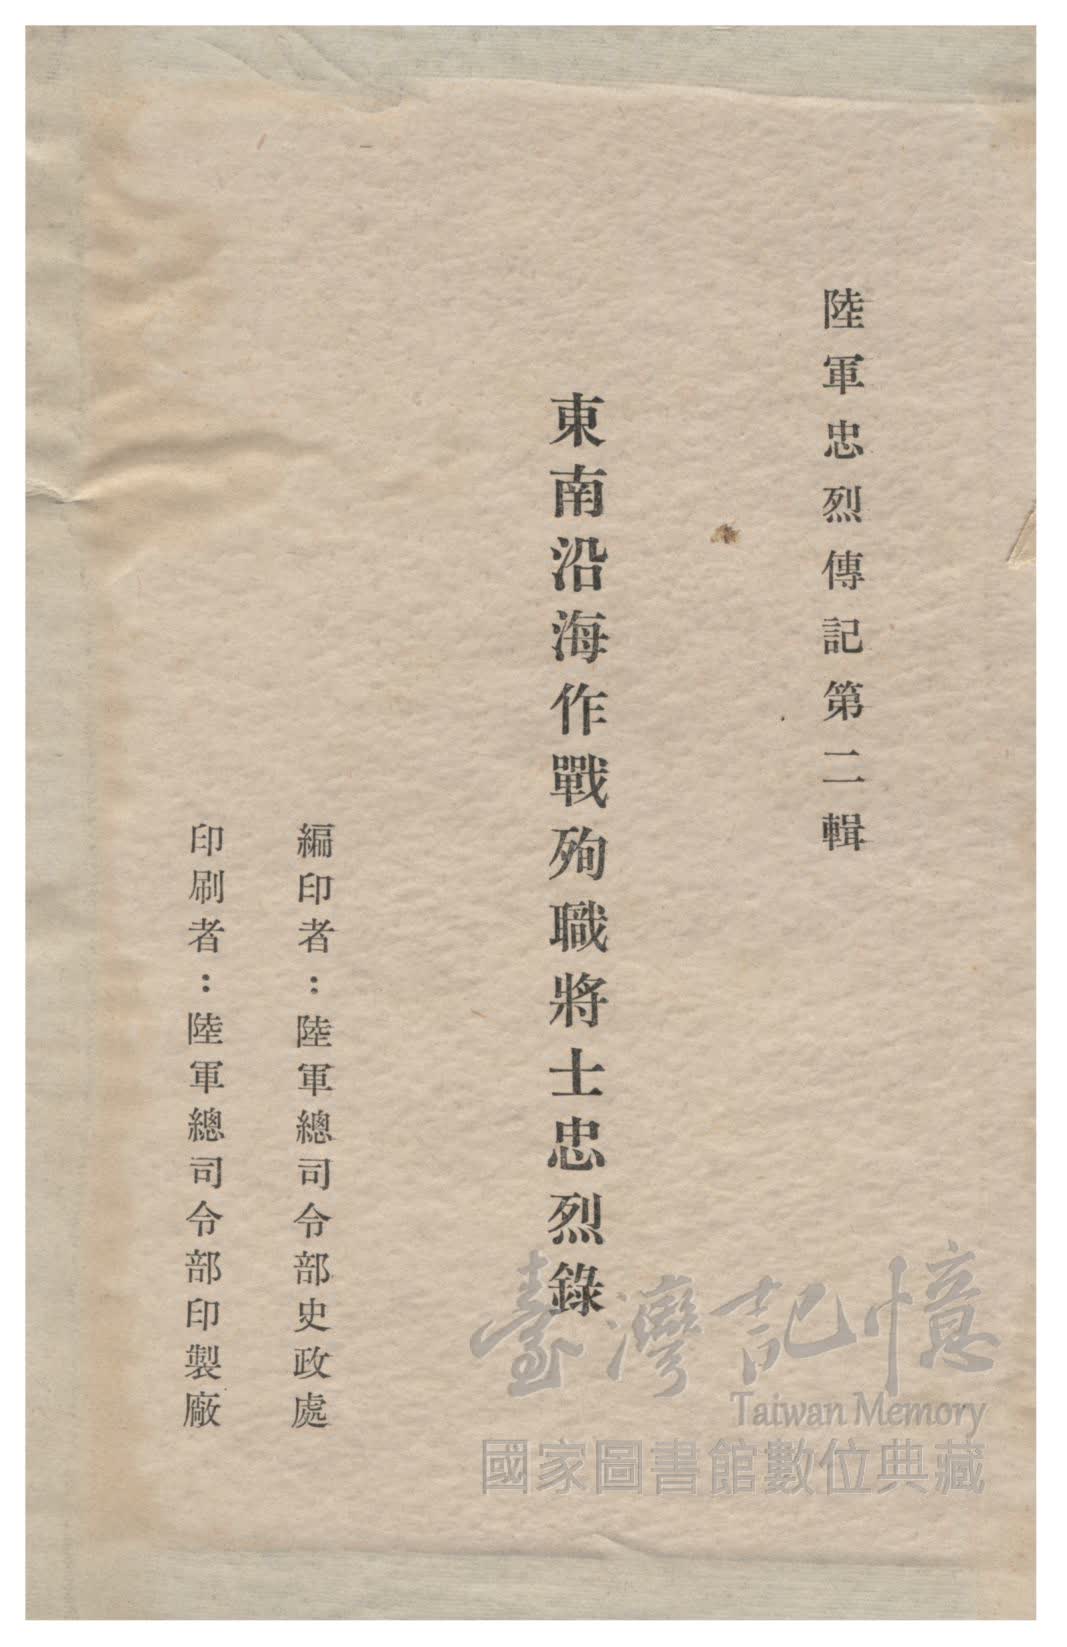 陸軍忠烈傳記第二輯
東南沿海作戰殉職將士忠烈錄
編印者：陸軍總司令部史政處
印刷者：陸軍總司令部印製廠
臺灣記憶
Taiwan Memory
國家圖書館數位典藏